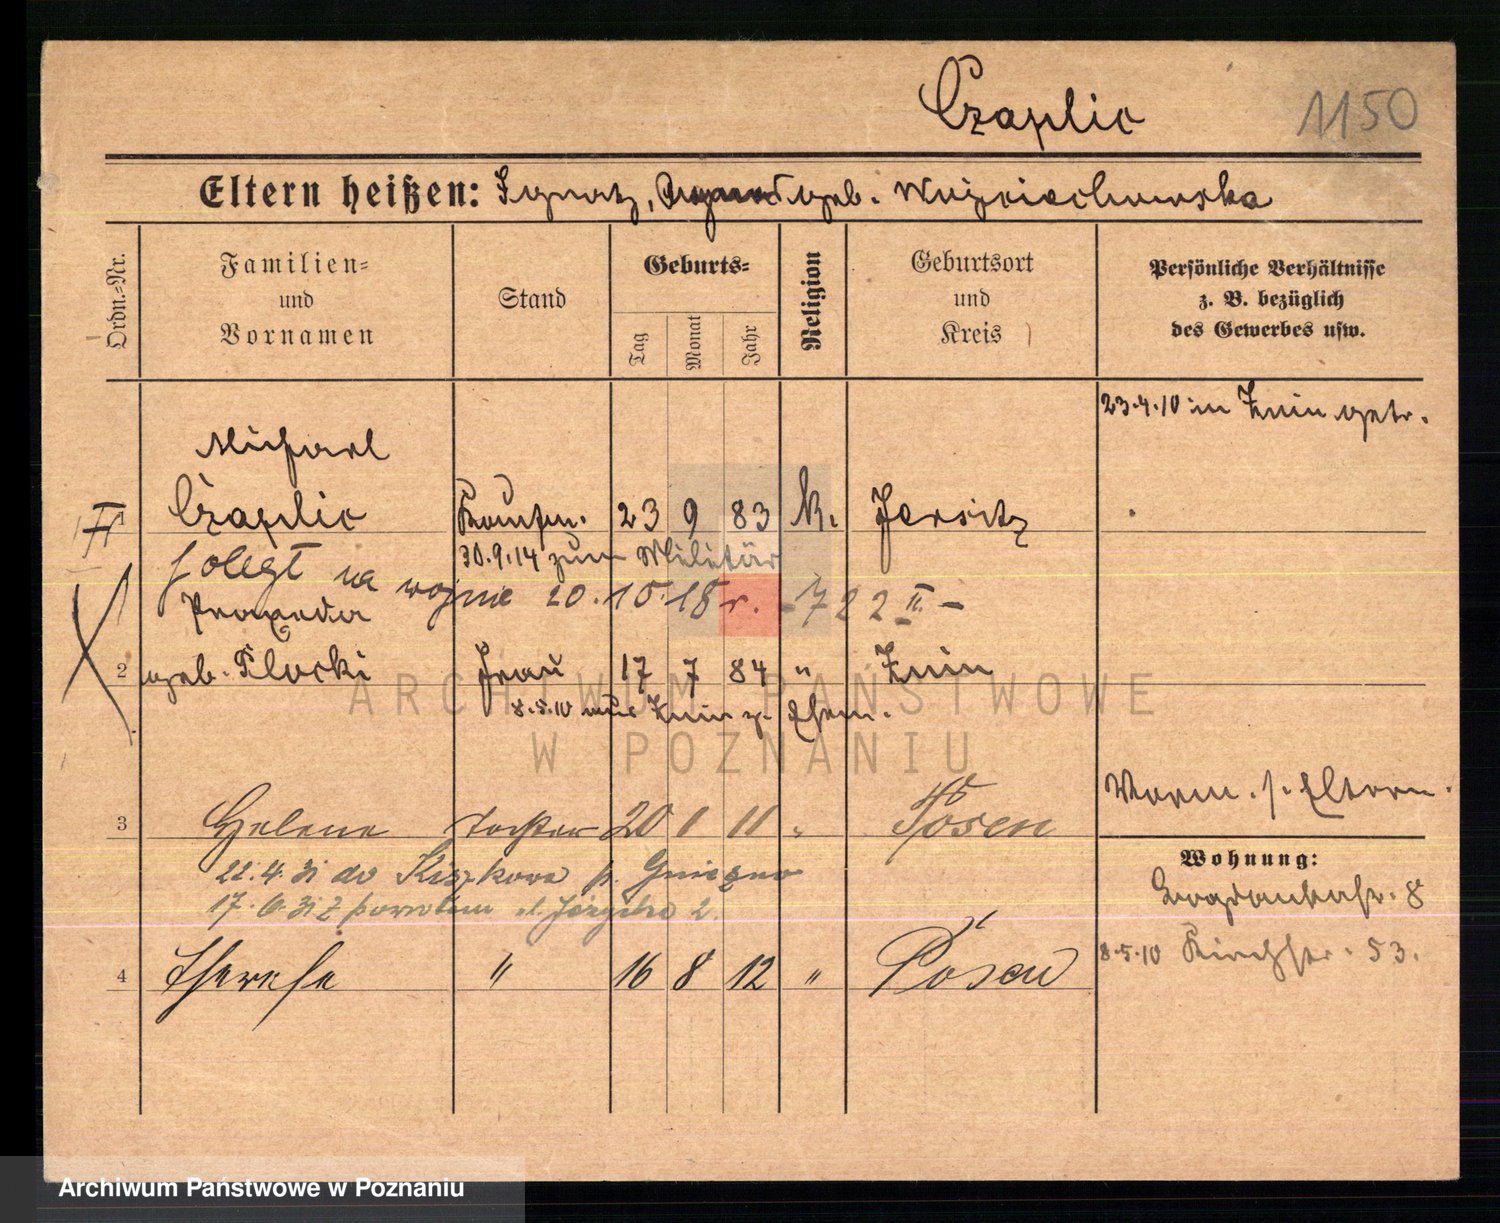 Czaplic
1150
Eltern heißen: Ignatz, geb. Wojciechowska
Ordn.=Nr.
Familien=
und
Vornamen
Stand
Geburts=
Tag
Monat
Jahr
Religion
Geburtsort
und
Kreis
Persönliche Verhältnisse
z. B. bezüglich
des Gewerbes usw.
23.4.10 in Znin getr.
Michael
Czaplic Kaufm. 23 9 83 K. Jersitz
30.9.14 zum Militär
poległ na wojnie 20.10.18 r. - 722 II -
Praxeda
2 geb. Plocki Frau 17 7 84 " Znin
8.5.10 aus Znin z. Ehem.
Vorm. s. Eltern.
3 Helene Tochter 20 1 11 " Posen
22.4.31 do Kiszkowa p. Gniezno
17.6.31 z powrotem ul. 2.
Wohnung:
8
8.5.10 Kirchstr. 53.
4 Therese " 16 8 12 " Posen
ARCHIWUM PAŃSTWOWE
W POZNANIU
Archiwum Państwowe w Poznaniu